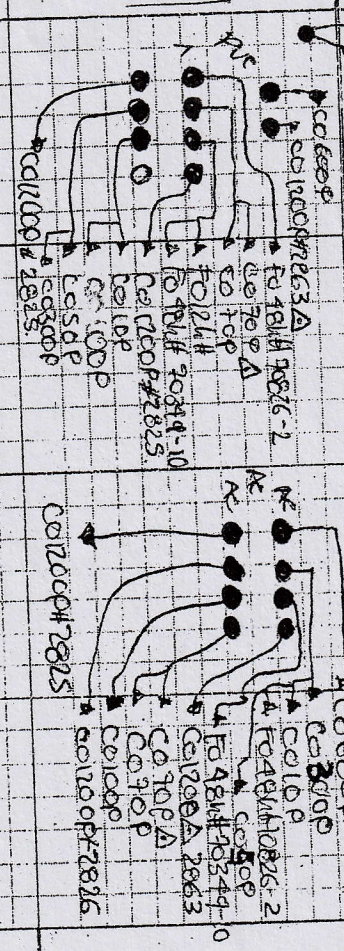 CO600P
CO1200P#2863△
FO48H#70826-2
CO70P△
CO70P
FO12H#
FO48H#70349-10
CO1200P#2825
CO10P
CO100P
CO50P
CO300P
CO1200P#2825
AC
AC
AC
CO1200P#2825
CO300P
CO10P
FO48H#70826-2
CO50P
FO48H#70349-10
CO1200△2863
CO70P△
CO70P
CO100P
CO1200P#2826